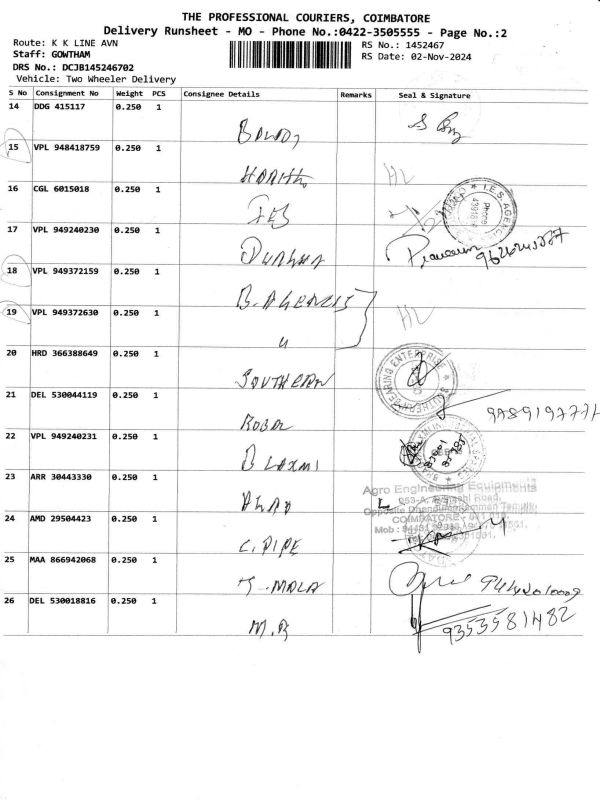 THE PROFESSIONAL COURIERS, COIMBATORE
Delivery Runsheet - MO - Phone No.:0422-3505555 - Page No.:2
Route: K K LINE AVN
RS No.: 1452467
Staff: GOWTHAM
RS Date: 02-Nov-2024
DRS No.: DCJB145246702
Vehicle: Two Wheeler Delivery
S No Consignment No Weight PCS Consignee Details Remarks Seal & Signature
14 DDG 415117 0.250 1
15 VPL 948418759 0.250 1 HL
16 CGL 6015018 0.250 1 IES
I.E.S. AGENC
Phone
17 VPL 949240230 0.250 1
18 VPL 949372159 0.250 1 B. AGENCIES
19 VPL 949372630 0.250 1 HL
20 HRD 366388649 0.250 1 SOUTHERN
SOUTHERN BEARING ENTERPRISE
21 DEL 530044119 0.250 1
22 VPL 949240231 0.250 1 B LAXMI
23 ARR 30443330 0.250 1
Agro Engineering Equipments
COIMBATORE
24 AMD 29504423 0.250 1 C. PIPE
25 MAA 866942068 0.250 1
26 DEL 530018816 0.250 1 9353581482